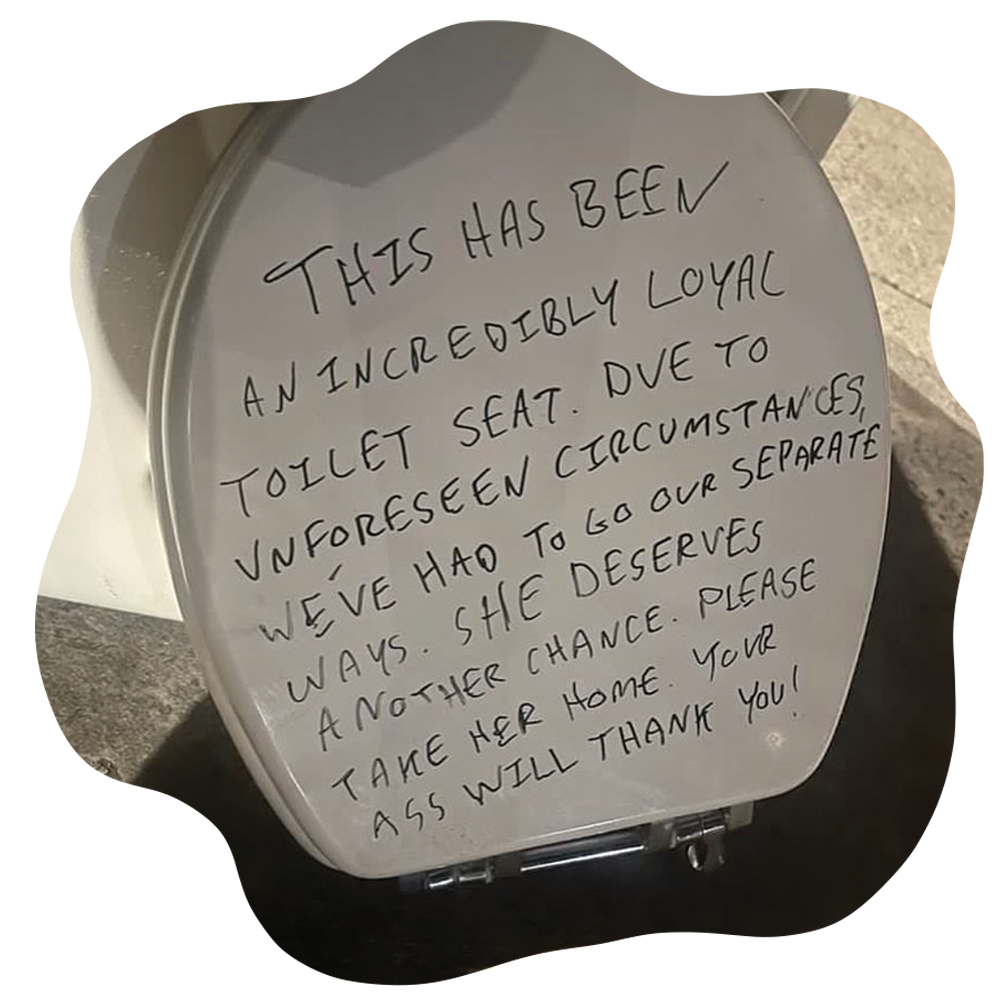 THIS HAS BEEN
AN INCREDIBLY LOYAL
TOILET SEAT. DUE TO
UNFORESEEN CIRCUMSTANCES,
WE'VE HAD TO GO OUR SEPARATE
WAYS. SHE DESERVES
ANOTHER CHANCE. PLEASE
TAKE HER HOME. YOUR
ASS WILL THANK YOU!